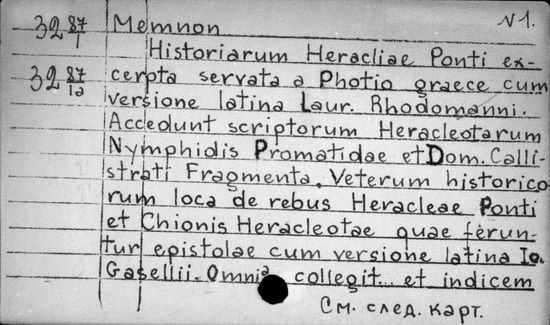 32 87/1 Memnon N 1.
Historiarum Heracliae Ponti ex-
32 87/1a cerpta servata a Photio graece cum
versione latina Laur. Rhodomanni.
Accedunt scriptorum Heracleotarum
Nymphidis Promatidae et Dom. Calli-
strati Fragmenta. Veterum historico
rum loca de rebus Heracleae Ponti
et Chionis Heracleotae quae ferun-
tur epistolae cum versione latina Io.
Gasellii. Omnia collegit et indicem
См. след. карт.